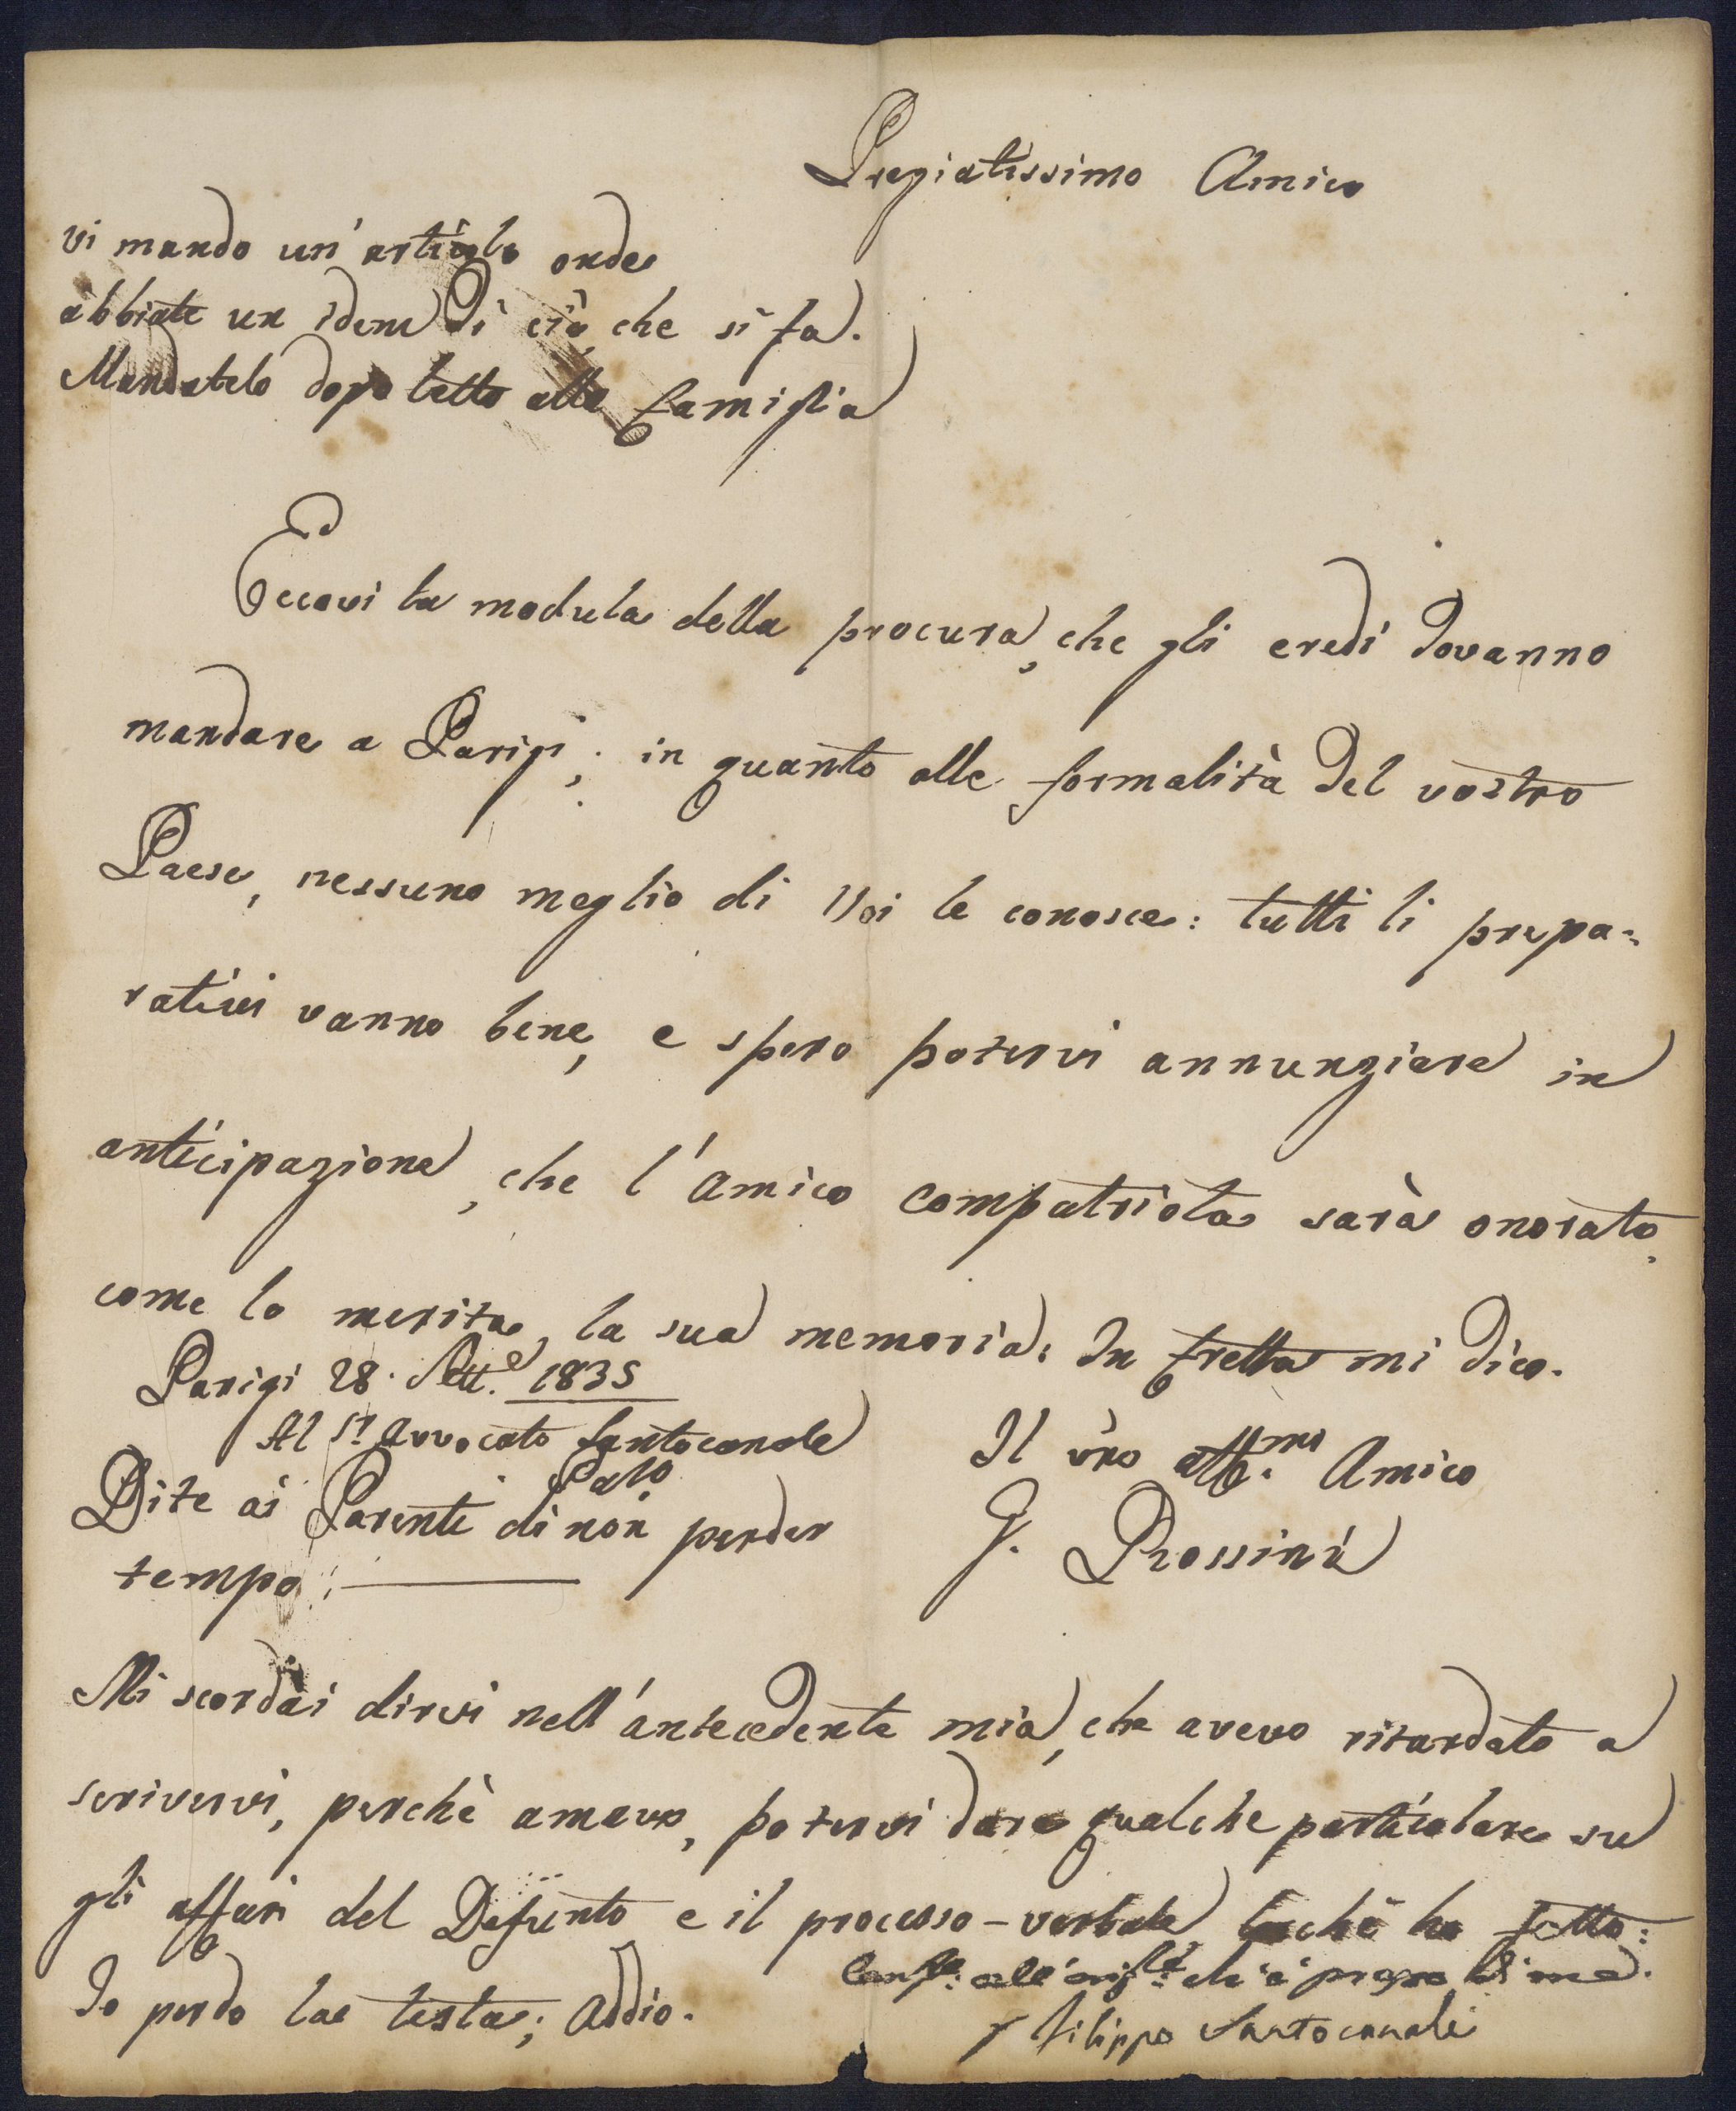 Pregiatissimo Amico
Vi mando un'articolo onde
abbiate un idem di ciò che si fa.
Mandatelo dopo letto alla famiglia
Eccovi la modula della procura, che gli eredi dovanno
mandare a Parigi; in quanto alle formalità del vostro
Paese, nessuno meglio di Voi le conosce: tutti li prepa=
rativi vanno bene, e spero potervi annunziare in
anticipazione, che l'amico compatriota sarà onorato,
come lo merita, la sua memoria. In fretta mi dico.
Parigi 28. Sett.e 1835
Al Sr Avvocato Santocanale
Palo
Il vro affo.mo Amico
G. Rossini
Dite ai Parenti di non perder
tempo.
Mi scordai dirvi nell'antecedente mia, che avevo ritardato a
scrivervi, perchè amavo, potervi dare qualche particolare su
gli affari del Defunto e il processo-verbale che ho fatto:
Io perdo la testa; addio.
Conf.e all'orig.le ch'è presso di me.
Filippo Santocanale